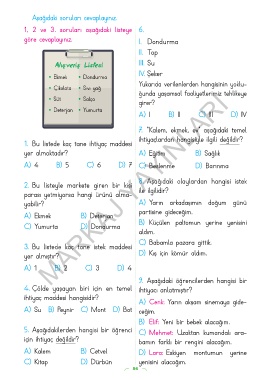 Aşağıdaki soruları cevaplayınız.
1, 2 ve 3. soruları aşağıdaki listeye
göre cevaplayınız.
Alışveriş Listesi
• Ekmek • Dondurma
• Çikolata • Sıvı yağ
• Süt • Salça
• Deterjan • Yumurta
1. Bu listede kaç tane ihtiyaç maddesi
yer almaktadır?
A) 4 B) 5 C) 6 D) 7
2. Bu listeyle markete giren bir kişi
parası yetmiyorsa hangi ürünü alma-
yabilir?
A) Ekmek B) Deterjan
C) Yumurta D) Dondurma
3. Bu listede kaç tane istek maddesi
yer almıştır?
A) 1 B) 2 C) 3 D) 4
4. Çölde yaşayan biri için en temel
ihtiyaç maddesi hangisidir?
A) Su B) Peynir C) Mont D) Bot
5. Aşağıdakilerden hangisi bir öğrenci
için ihtiyaç değildir?
A) Kalem B) Cetvel
C) Kitap D) Dürbün
6.
I. Dondurma
II. Top
III. Su
IV. Şeker
Yukarıda verilenlerden hangisinin yoklu-
ğunda yaşamsal faaliyetlerimiz tehlikeye
girer?
A) I B) II C) III D) IV
7. "Kalem, ekmek, ev" aşağıdaki temel
ihtiyaçlardan hangisiyle ilgili değildir?
A) Eğitim B) Sağlık
C) Beslenme D) Barınma
8. Aşağıdaki olaylardan hangisi istek
ile ilgilidir?
A) Yarın arkadaşımın doğum günü
partisine gideceğim.
B) Küçülen paltomun yerine yenisini
aldım.
C) Babamla pazara gittik.
D) Kış için kömür aldım.
9. Aşağıdaki öğrencilerden hangisi bir
ihtiyacı anlatmıştır?
A) Cenk: Yarın akşam sinemaya gide-
ceğim.
B) Elif: Yeni bir bebek alacağım.
C) Mehmet: Uzaktan kumandalı ara-
bamın farklı bir rengini alacağım.
D) Lara: Eskiyen montumun yerine
yenisini alacağım.